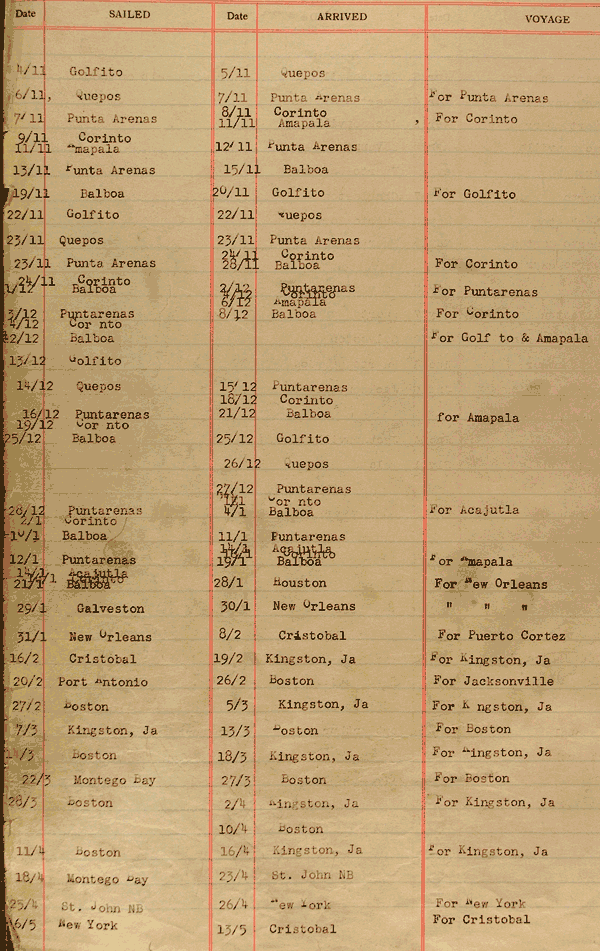 Date SAILED Date ARRIVED VOYAGE
4/11 Golfito 5/11 Quepos
6/11, Quepos 7/11 Punta Arenas For Punta Arenas
7/11 Punta Arenas 8/11 Corinto For Corinto
11/11 Amapala
9/11 Corinto
11/11 Amapala 12/11 Punta Arenas
13/11 Punta Arenas 15/11 Balboa
19/11 Balboa 20/11 Golfito For Golfito
22/11 Golfito 22/11 Quepos
23/11 Quepos 23/11 Punta Arenas
24/11 Corinto
23/11 Punta Arenas 28/11 Balboa For Corinto
24/11 Corinto
1/12 Balboa 2/12 Puntarenas For Puntarenas
Corinto
6/12 Amapala
3/12 Puntarenas 8/12 Balboa For Corinto
4/12 Cor nto
12/12 Balboa For Golf to & Amapala
13/12 Golfito
14/12 Quepos 15/12 Puntarenas
18/12 Corinto
16/12 Puntarenas 21/12 Balboa for Amapala
19/12 Cor nto
25/12 Balboa 25/12 Golfito
26/12 Quepos
27/12 Puntarenas
1/1 Cor nto
28/12 Puntarenas 4/1 Balboa For Acajutla
2/1 Corinto
10/1 Balboa 11/1 Puntarenas
14/1 Acajutla
Corinto
12/1 Puntarenas 19/1 Balboa For Amapala
14/1 Acajutla
Corinto
21/1 Balboa 28/1 Houston For New Orleans
29/1 Galveston 30/1 New Orleans " " "
31/1 New Orleans 8/2 Cristobal For Puerto Cortez
16/2 Cristobal 19/2 Kingston, Ja For Kingston, Ja
20/2 Port Antonio 26/2 Boston For Jacksonville
27/2 Boston 5/3 Kingston, Ja For K ngston, Ja
7/3 Kingston, Ja 13/3 Boston For Boston
14/3 Boston 18/3 Kingston, Ja For Kingston, Ja
22/3 Montego Bay 27/3 Boston For Boston
28/3 Boston 2/4 Kingston, Ja For Kingston, Ja
10/4 Boston
11/4 Boston 16/4 Kingston, Ja For Kingston, Ja
18/4 Montego Bay 23/4 St. John NB
25/4 St. John NB 26/4 New York For New York
6/5 New York 13/5 Cristobal For Cristobal